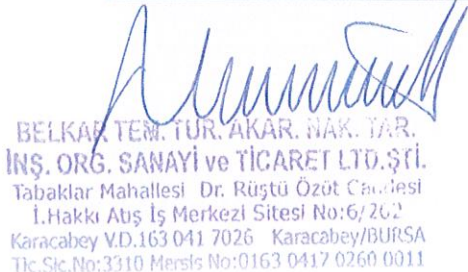 BELKAR TEM. TUR. AKAR. NAK. TAR.
İNŞ. ORG. SANAYİ ve TİCARET LTD.ŞTİ.
Tabaklar Mahallesi Dr. Rüştü Özöt Caddesi
İ.Hakkı Atış İş Merkezi Sitesi No:6/262
Karacabey V.D.163 041 7026 Karacabey/BURSA
Tic.Sic.No:3310 Mersis No:0163 0417 0260 0011